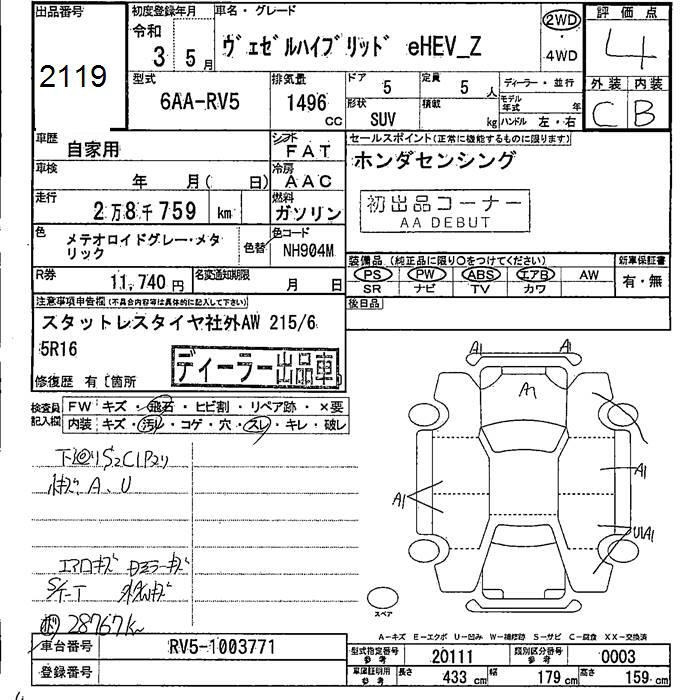 出品番号
2119
初度登録年月
令和
3年5月
車名・グレード
ヴェゼルハイブリッド eHEV_Z
2WD
・
4WD
評価点
4
外装 内装
C B
型式
6AA-RV5
排気量
1496
cc
ドア
5
形状
SUV
定員
5人
積載
kg
ディーラー・並行
モデル年式 年
ハンドル 左・右
車歴
自家用
シフト
FAT
車検
年 月( 日)
冷房
AAC
走行
2万8千759 km
燃料
ガソリン
色
メテオロイドグレー・メタリック
色替
色コード
NH904M
R券
11,740円
名変通知期限
月 日
セールスポイント(正常に機能するものに限ります)
ホンダセンシング
初出品コーナー
AA DEBUT
装備品(純正品に限り○をつけてください)
PS PW ABS エアB AW
SR ナビ TV カワ
新車保証書
有・無
後日品
注意事項申告欄(不具合内容等は具体的に記入して下さい)
スタットレスタイヤ社外AW 215/6
5R16
ディーラー出品車
修復歴 有〔箇所
検査員記入欄
FW キズ・飛石・ヒビ割・リペア跡・×要
内装 キズ・汚レ・コゲ・穴・スレ・キレ・破レ
下回りS2C1P2り
A、U
エアロキズ
28767K
A1 A1
A1
A1
A1
U1A1
スペア
A-キズ E-エクボ U-凹み W-補修跡 S-サビ C-腐食 XX-交換済
車台番号 RV5-1003771
登録番号
型式指定番号 参考 20111
類別区分番号 参考 0003
車庫証明用 参考 長さ 433 cm 幅 179 cm 高さ 159 cm